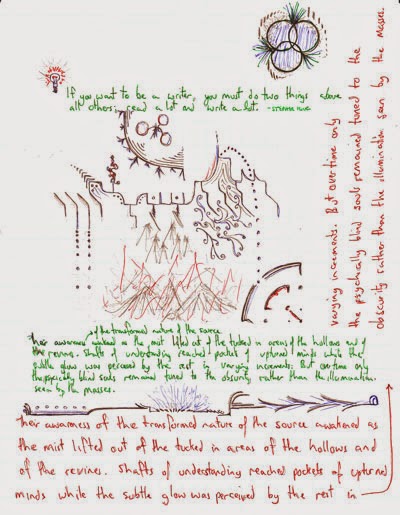 If you want to be a writer, you must do two things above
all others: read a lot and write a lot. -STEPHEN KING
of the transformed nature of the source
her awareness awakened as the mist lifted out of the tucked in areas of the hollows and of
the revines. Shafts of understanding reached pockets of upturned minds while the
subtle glow was perceived by the rest in varying increments. But overtime only
the psychically blind souls remained tuned to the obscurity rather than the illumination
seen by the masses.
her awareness of the transformed nature of the source awakened as
the mist lifted out of the tucked in areas of the hollows and
of the revines. Shafts of understanding reached pockets of upturned
minds while the subtle glow was perceived by the rest in
varying increments. But overtime only
the psychically blind souls remained tuned to the
obscurity rather than the illumination seen by the masses.